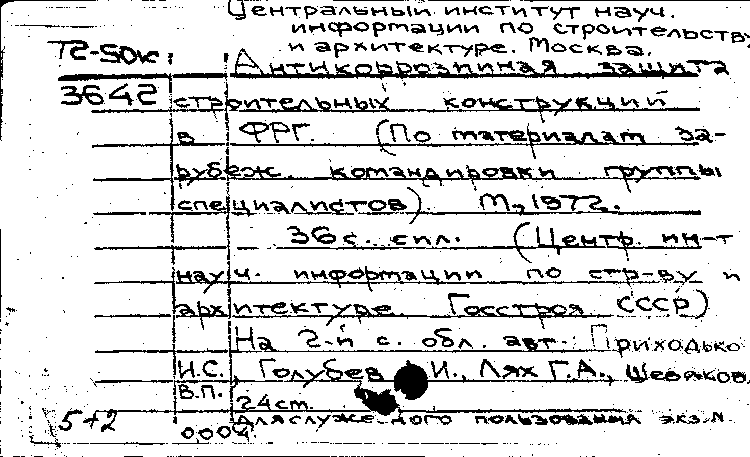 Центральный институт науч.
информации по строительству
и архитектуре. Москва.
Т2-50к Антикоррозийная защита
3642 строительных конструкций
в ФРГ. (По материалам за-
рубеж. командировки группы
специалистов). М., 1972.
36 с. илл. (Центр. ин-т
науч. информации по стр-ву и
архитектуре Госстроя СССР)
На 2-й с. обл. авт.: Приходько
И.С., Голубев И., Лях Г.А., Шевяков
В.П.
24 см.
5+2 Для служебного пользования экз.N.
0004.